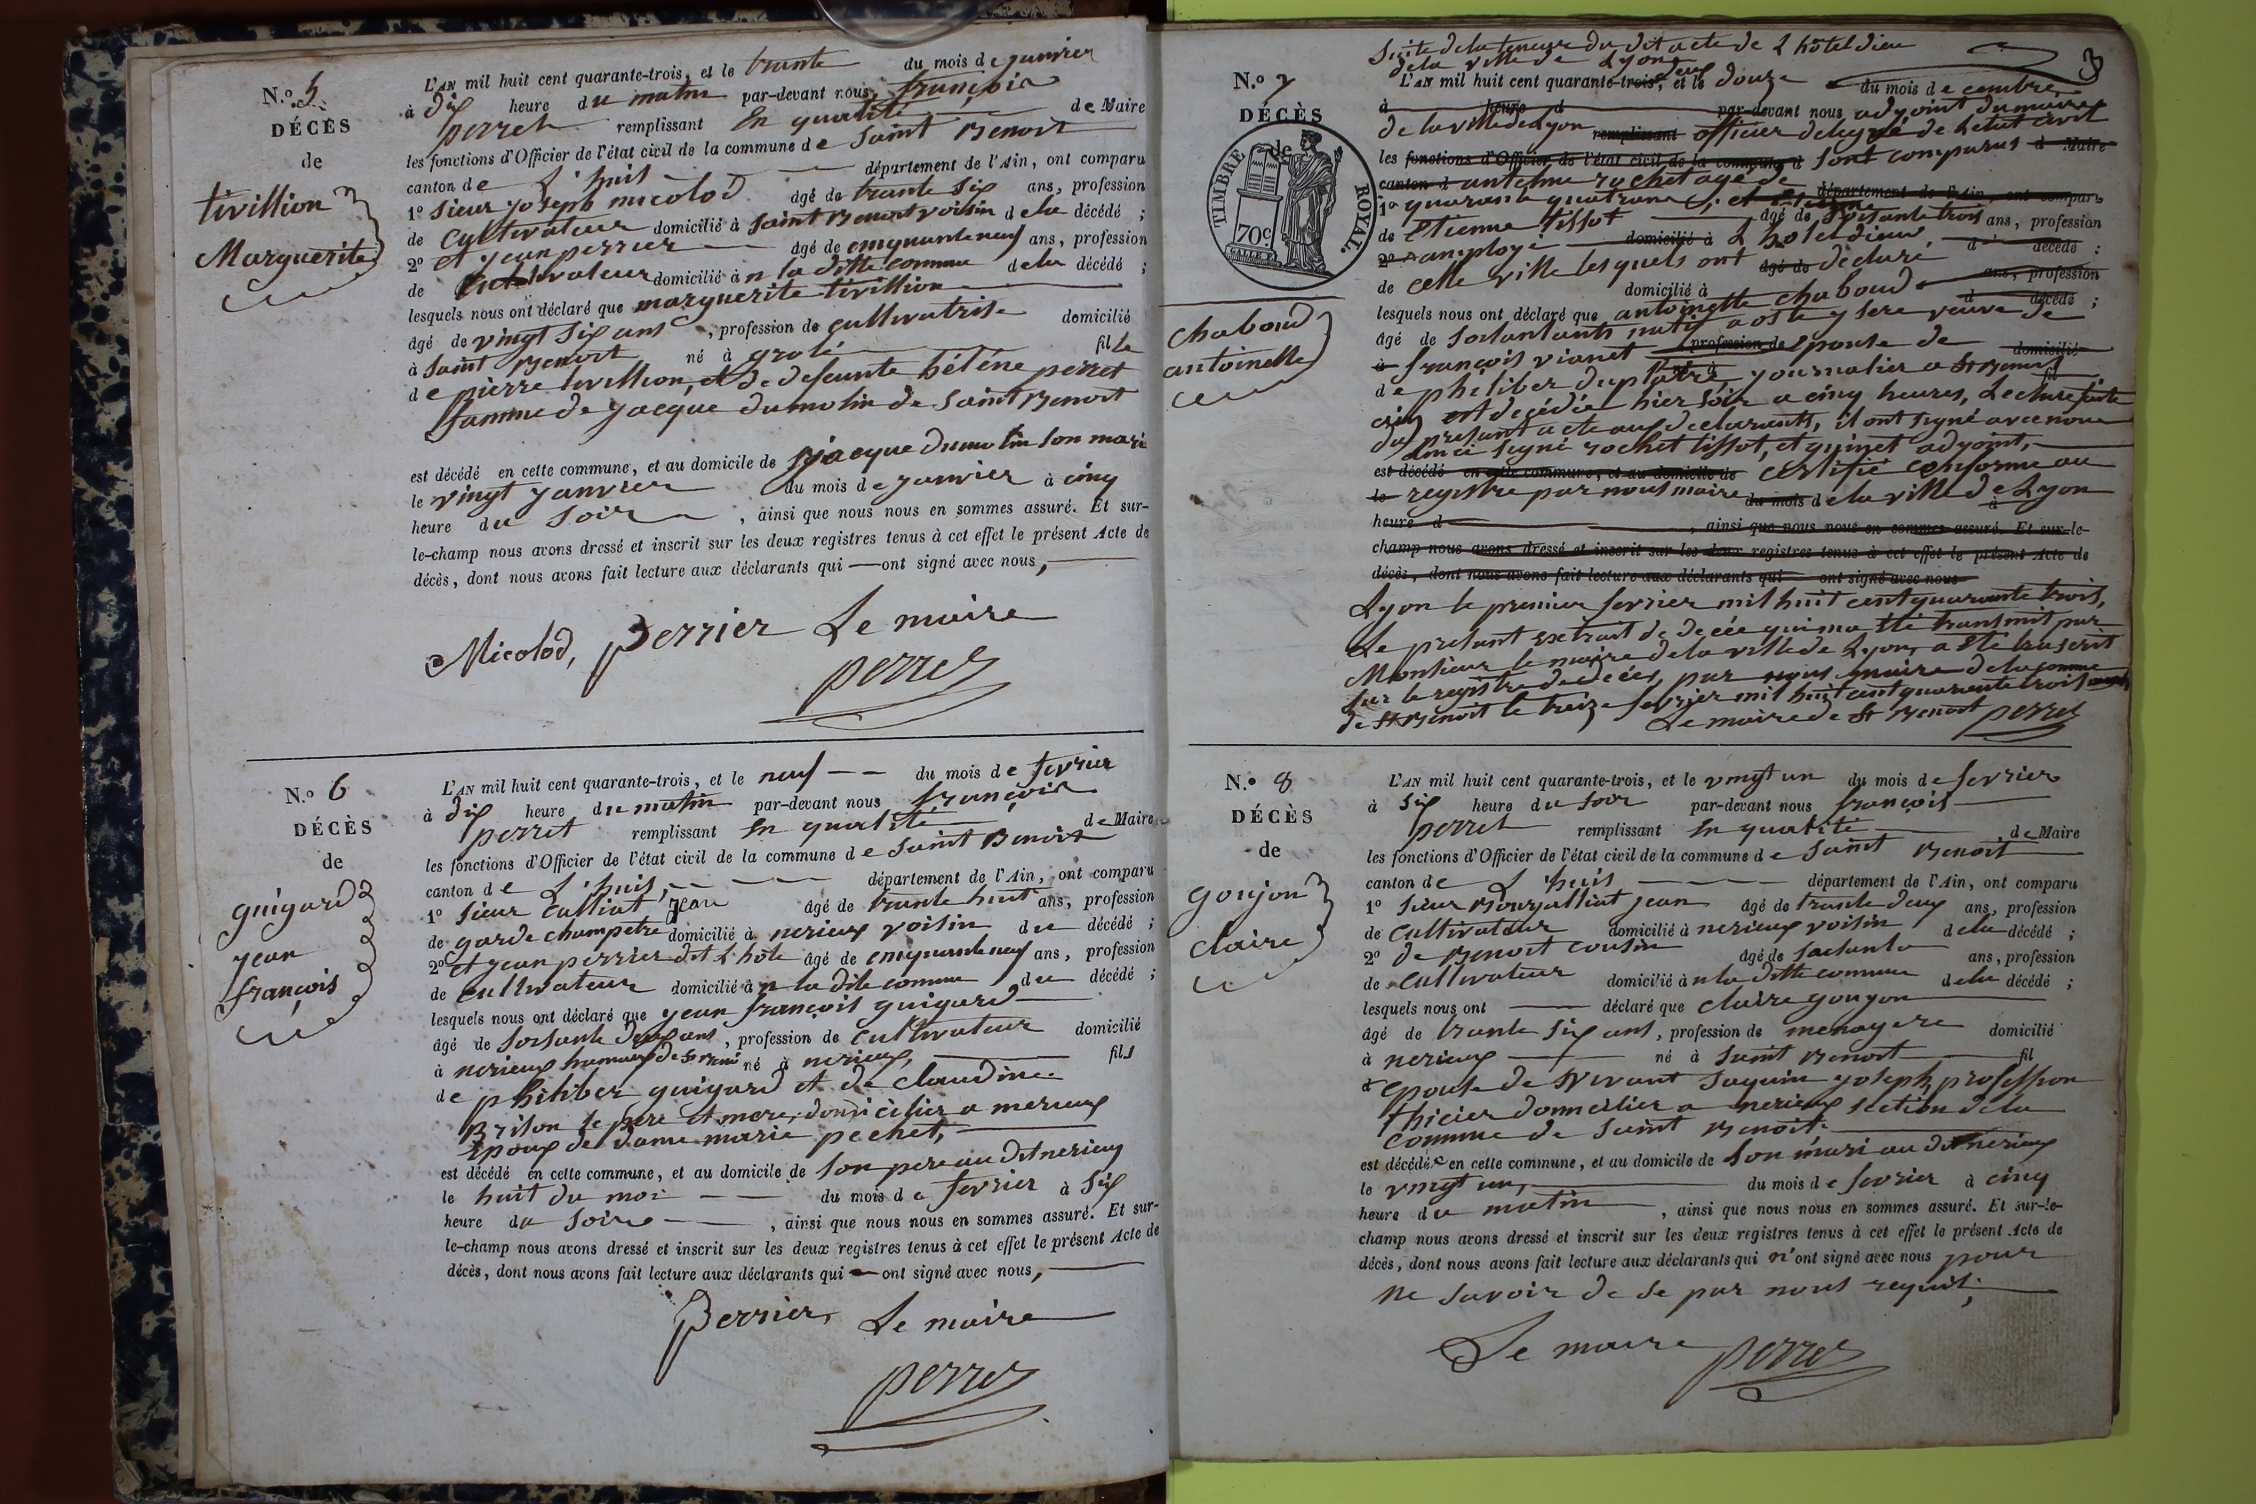 N.º 5
DÉCÈS
de
tivillion
Marguerite
L'AN mil huit cent quarante-trois, et le trante du mois de janvier
à dix heure du matin par-devant nous, françois
perret remplissant en qualité de Maire
les fonctions d'Officier de l'état civil de la commune de saint Benoit
canton de L'huis département de l'Ain, ont comparu
1º sieur joseph micolod âgé de trante six ans, profession
de cultivateur domicilié à saint Benoit voisin de la décédé ;
2º et jean perrier âgé de cinquante neuf ans, profession
de cultivateur domicilié à n la ditte commune de la décédé ;
lesquels nous ont déclaré que marguerite tivillion
âgé de vingt six ans, profession de cultivatrise domicilié
à saint Benoit né à grolé fille
de pierre tivillion, et de defeunte héléne perret
famme de jacque dumolin de saint Benoit
est décédé en cette commune, et au domicile de jacque dumolin son mari
le vingt janvier du mois de janvier à cinq
heure du soir, ainsi que nous nous en sommes assuré. Et sur-
le-champ nous avons dressé et inscrit sur les deux registres tenus à cet effet le présent Acte de
décès, dont nous avons fait lecture aux déclarants qui ont signé avec nous,
Micolod, perrier Le maire
perret
N.º 6
DÉCÈS
de
guigard
jean
françois
L'AN mil huit cent quarante-trois, et le neuf du mois de fevrier
à dix heure du matin par-devant nous françois
perret remplissant en qualité de Maire
les fonctions d'Officier de l'état civil de la commune de saint Benoit
canton de L'huis, département de l'Ain, ont comparu
1º sieur Calliat jean âgé de trante huit ans, profession
de garde champetre domicilié à nerieux voisin du décédé ;
2º et jean perrier dit L'hôte âgé de cinquante neuf ans, profession
de cultivateur domicilié à n la dite commune du décédé ;
lesquels nous ont déclaré que jean françois guigard
âgé de soisante deux ans, profession de cultivateur domicilié
à nerieux hameaux de St Benoi né à nerieux, fils
de philiber guigard et de claudine
Brison le père et mere, domicilier a nerieux
Epoux de dame marie pechet,
est décédé en cette commune, et au domicile de son pere au dit nerieux
le huit du moi du mois de fevrier à six
heure du soire, ainsi que nous nous en sommes assuré. Et sur-
le-champ nous avons dressé et inscrit sur les deux registres tenus à cet effet le présent Acte de
décès, dont nous avons fait lecture aux déclarants qui ont signé avec nous,
Perrier, Le maire
perret
3
Suite de la teneur du dit acte de L'hôtel dieu
de la ville de Lyon
N.º 7
DÉCÈS
de
TIMBRE ROYAL.
70c
chaboud
antoinette
L'AN mil huit cent quarante-trois, et le douze du mois de cembre
à heure d par-devant nous adjoint du maire
de la ville de Lyon remplissant officier delegué de l'etat civil
les fonctions d'Officier de l'état civil de la commune d sont comparus d Maire
canton d antelme rochet agé de département de l'Ain, ont comparu
1º quarante quatre ans, et âgé de soisante trois ans, profession
de Etienne tissot domicilié à L'hotel dieu d décédé ;
2º amployé âgé de déclaré ans, profession
de cette ville lesquels ont domicilié à d décédé ;
lesquels nous ont déclaré que antoinette chaboud
âgé de soisantans, natif a veuve de
à françois vianet profession de Epouse de domicilié
de philiber duplâtre journalier a St Benoit fil
est décédée hier soir a cinq heures, Lecture faite
du presant acte aux declarants, il ont signé avec nous
signé rochet tissot, et guinet adjoint,
est décédé en cette commune, et au domicile de certifié conforme au
le registre par nous maire du mois de la ville de Lyon à
heure d, ainsi que nous nous en sommes assuré. Et sur-le-
champ nous avons dressé et inscrit sur les deux registres tenus à cet effet le présent Acte de
décès, dont nous avons fait lecture aux déclarants qui ont signé avec nous
Lyon le premier fevrier mil huit cent quarante trois,
Le presant extrait de decée qui ma été transmit par
Monsieur le maire de la ville de Lyon, a été trascrit
sur le registre de decée, par nous maire de la comme
de St Benoit le treize fevrier mil huit cent quarante trois
Le maire de St Benoit perret
N.º 8
DÉCÈS
de
goujon
claire
L'AN mil huit cent quarante-trois, et le vingt un du mois de fevrier
à six heure du soir par-devant nous françois
perret remplissant en qualité de Maire
les fonctions d'Officier de l'état civil de la commune de saint Benoit
canton de L'huis département de l'Ain, ont comparu
1º sieur Bourjalliat jean âgé de trante deux ans, profession
de cultivateur domicilié à nerieux voisin de la décédé ;
2º de Benoit cousin âgé de soisante ans, profession
de cultivateur domicilié à n la ditte commune de la décédé ;
lesquels nous ont déclaré que claire goujon
âgé de trante six ans, profession de menagere domicilié
à nerieux né à saint Benoit fil
d epouse de Survivant saquin joseph profession
thicier domicilier a nerieux section de la
commune de saint Benoit
est décédée en cette commune, et au domicile de son mari au dit nerieux
le vingt un, du mois de fevrier à cinq
heure du matin, ainsi que nous nous en sommes assuré. Et sur-le-
champ nous avons dressé et inscrit sur les deux registres tenus à cet effet le présent Acte de
décès, dont nous avons fait lecture aux déclarants qui n'ont signé avec nous pour
ne savoir de se par nous requit;
Le maire perret